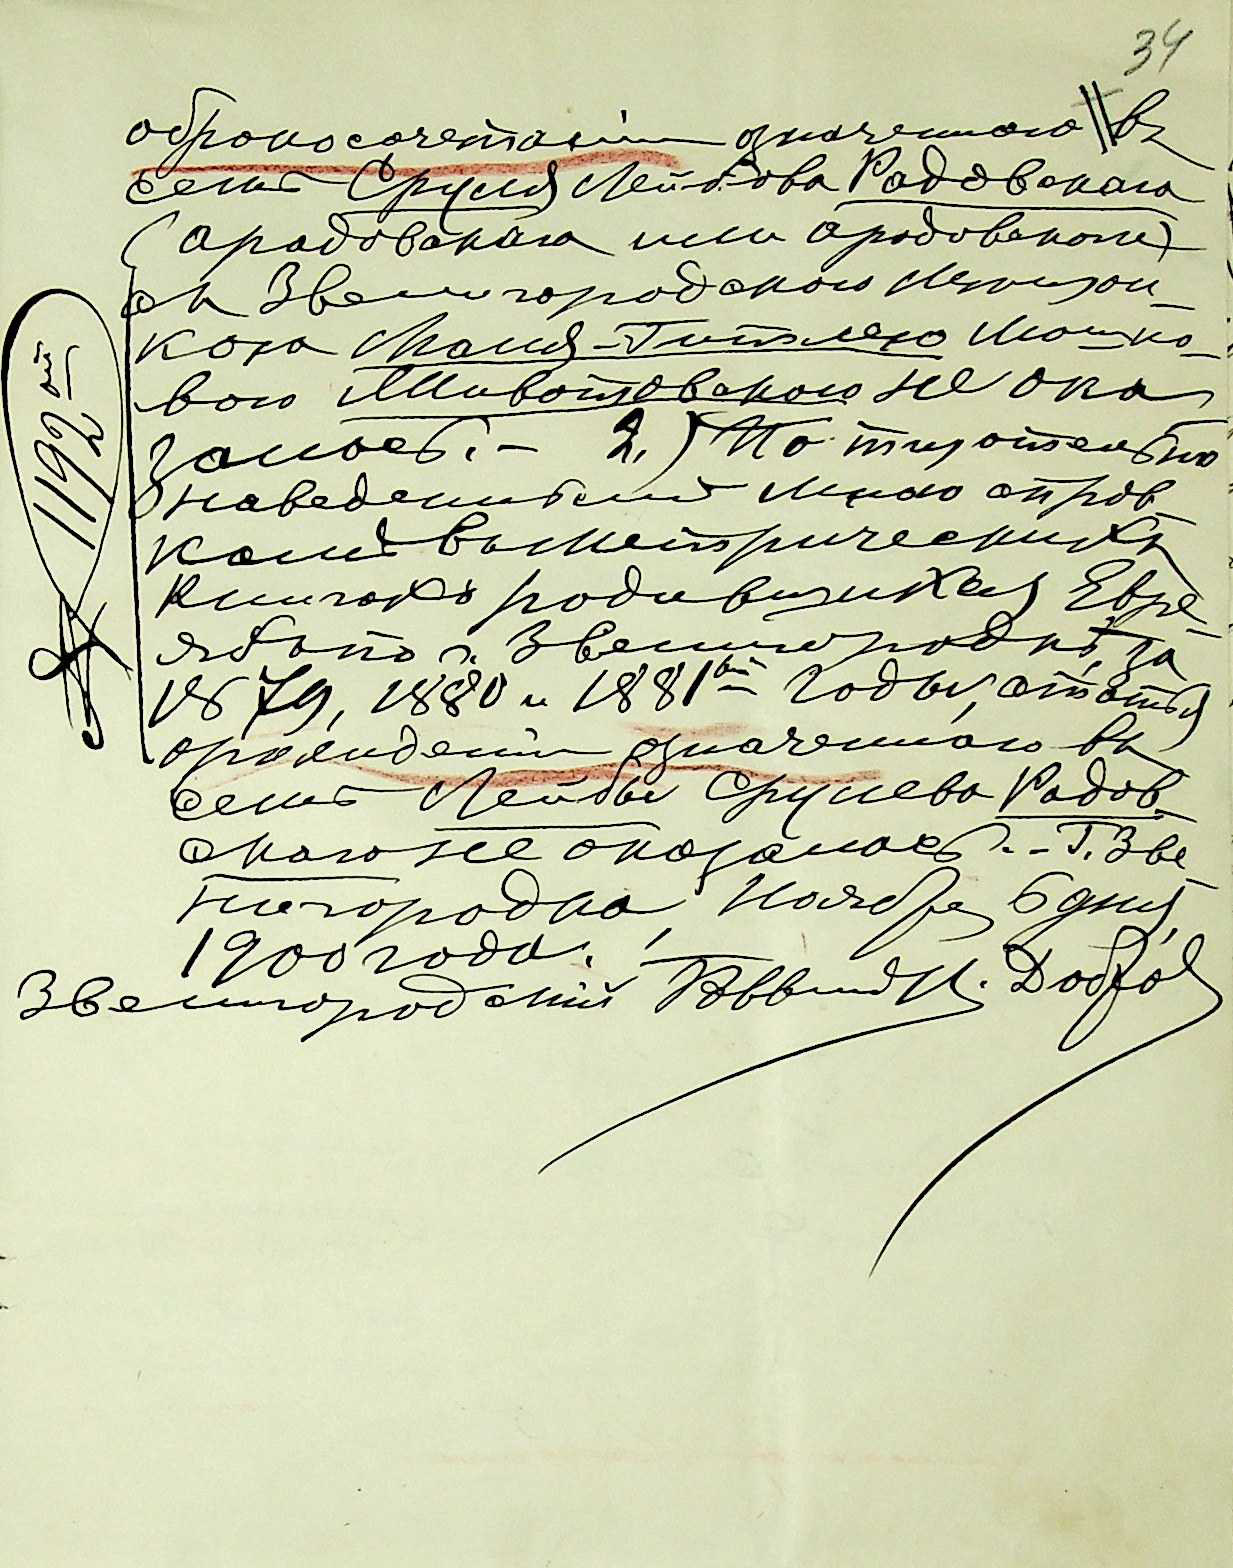 34
о бракосочетаніи означеннаго въ
семъ Сруля Лейбова Радовскаго
(Арадовскаго или Ародовскаго)
съ Звенигородскою
кою Маней-Тителею Мошко-
вою Животовскою не ока-
залось. – 2.) По тщательно
наведенной мною справ-
ке въ метрическихъ
книгахъ родившихся Евре-
евъ по г. Звенигородкѣ, за
1879, 1880 и 1881ый годы, статьи
о рожденіи означеннаго въ
семъ Лейбы Срулева Радов-
скаго не оказалось. – Г. Зве-
нигородка, Ноября 6 дня,
1900 года.
Звенигородский Раввинъ
1192